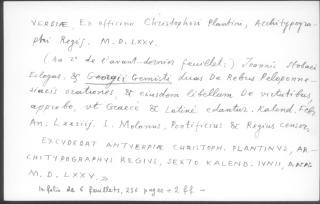 VERPIAE, Ex officina Christophori Plantini, Architypogra-
phi Regij. M. D. LXXV.
(au r° de l'avant-dernier feuillet:) Joannis Stobaei
Eclogas, & Georgii Gemisti duas De Rebus Peloponne-
siacis orationes, & eiusdem libellum De virtutibus,
approbo, vt Graecè & Latinè edantur. Kalend. Feb.
An. Lxxiij. I. Molanus, Pontificius & Regius censor.
EXCVDEBAT ANTVERPIAE CHRISTOPH. PLANTINVS, AR-
CHITYPOGRAPHVS REGIVS, SEXTO KALEND. IVNII, ANNO
M. D. LXXV.».
In folio de 6 feuillets, 236 pages + 2 ff. —